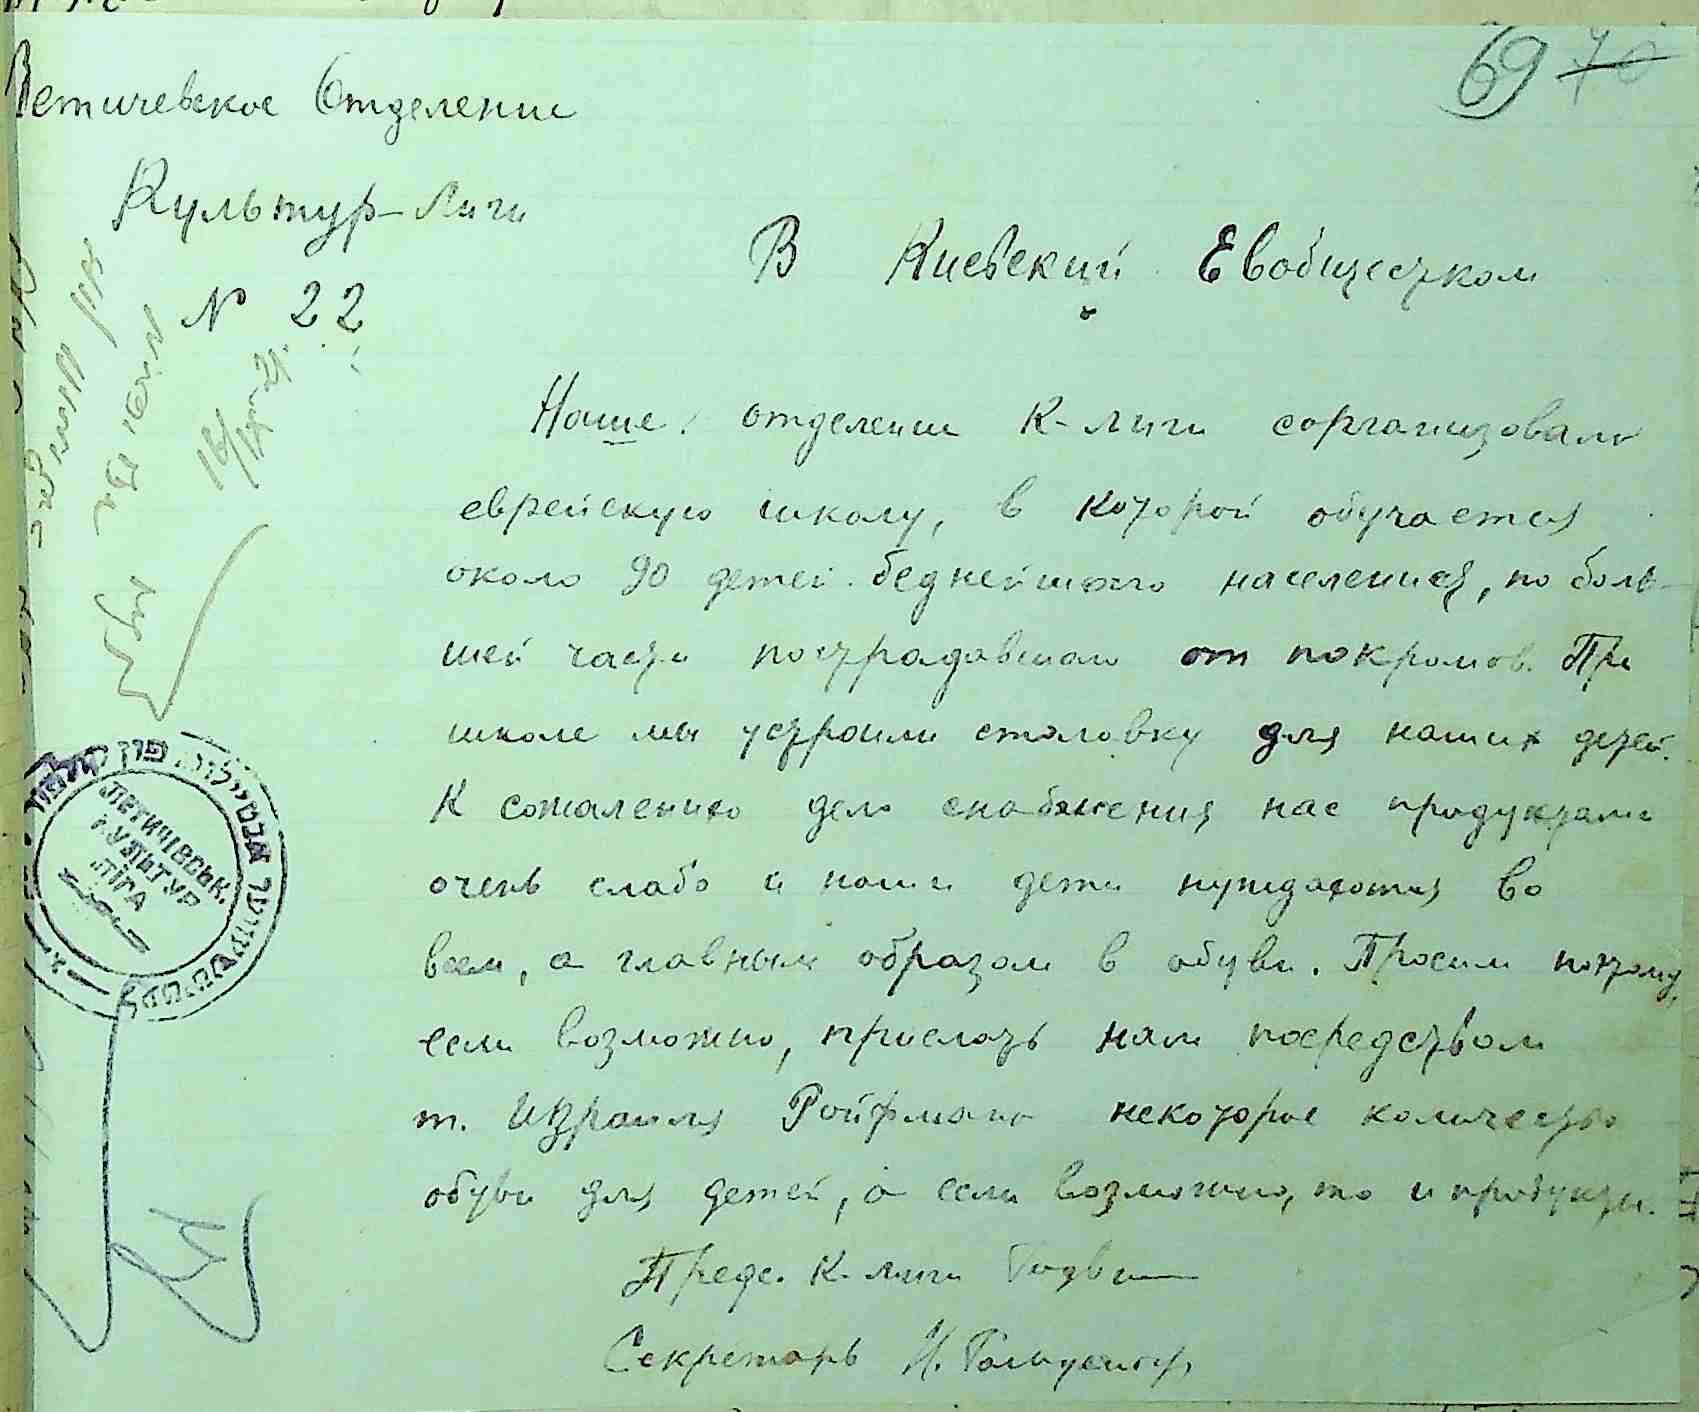 69 70
Летичевское Отделение
Культур-Лиги
N 22
В Киевский Евобщестком
Наше отделение К-лиги сорганизовало
еврейскую школу, в которой обучается
около 90 детей беднейшего населения, по боль-
шей части пострадавшаго от покромов. При
школе мы устроили столовку для наших детей.
К сожалению дело снабжения нас продуктами
очень слабо и наши дети нуждаются во
всем, а главным образом в обуви. Просим потому,
если возможно, прислать нам посредством
т. Израиля Ройфмана некоторое количество
обуви для детей, а если возможно, то и продукты.
Предс. К-лиги
Секретарь И.
ЛЕТИЧІВСЬК.
КУЛЬТУР
ЛІГА